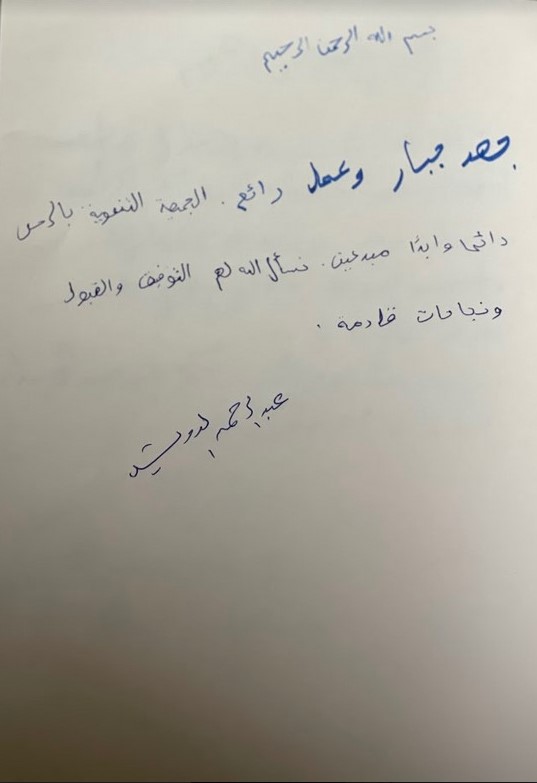 بسم الله الرحمن الرحيم
جهد جبار وعمل رائع. الجمعية التنموية بالرس
دائما وابدًا مبدعين. نسأل الله لهم التوفيق والقبول
ونجاحات قادمة.
عبدالرحمن الدويش